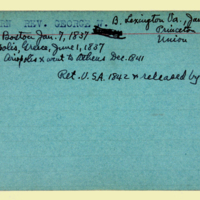 REV. GEORGE W. B. Lexington Va., Jan
Princeton
Boston Jan. 7, 1837 Union
polis, Greece, June 1, 1837
Ariopolis & went to Athens Dec. 1841
Ret. U.S.A. 1842 & released by